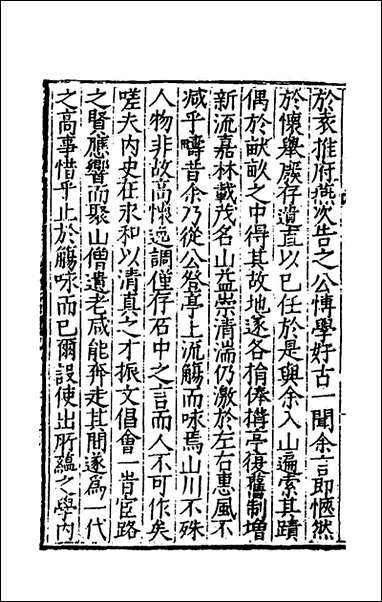 於衮推府燕次告之公博學好古一聞余言即愜然
於懷舉廢存遺直以已任於是與余入山遍索其蹟
偶於畎畝之中得其故地遂各捐俸搆亭復舊制增
新流嘉林載茂名山益崇清湍仍激於左右惠風不
减乎疇昔余乃從公登亭上流觴而咏焉山川不殊
人物非故高懷逸調僅存石中之言而人不可作矣
嗟夫内史在永和以清真之才振文倡會一時臣路
之賢應響而聚山僧遺老咸能奔走其間遂爲一代
之高事惜乎止於觴咏而已爾設使出所蘊之學内